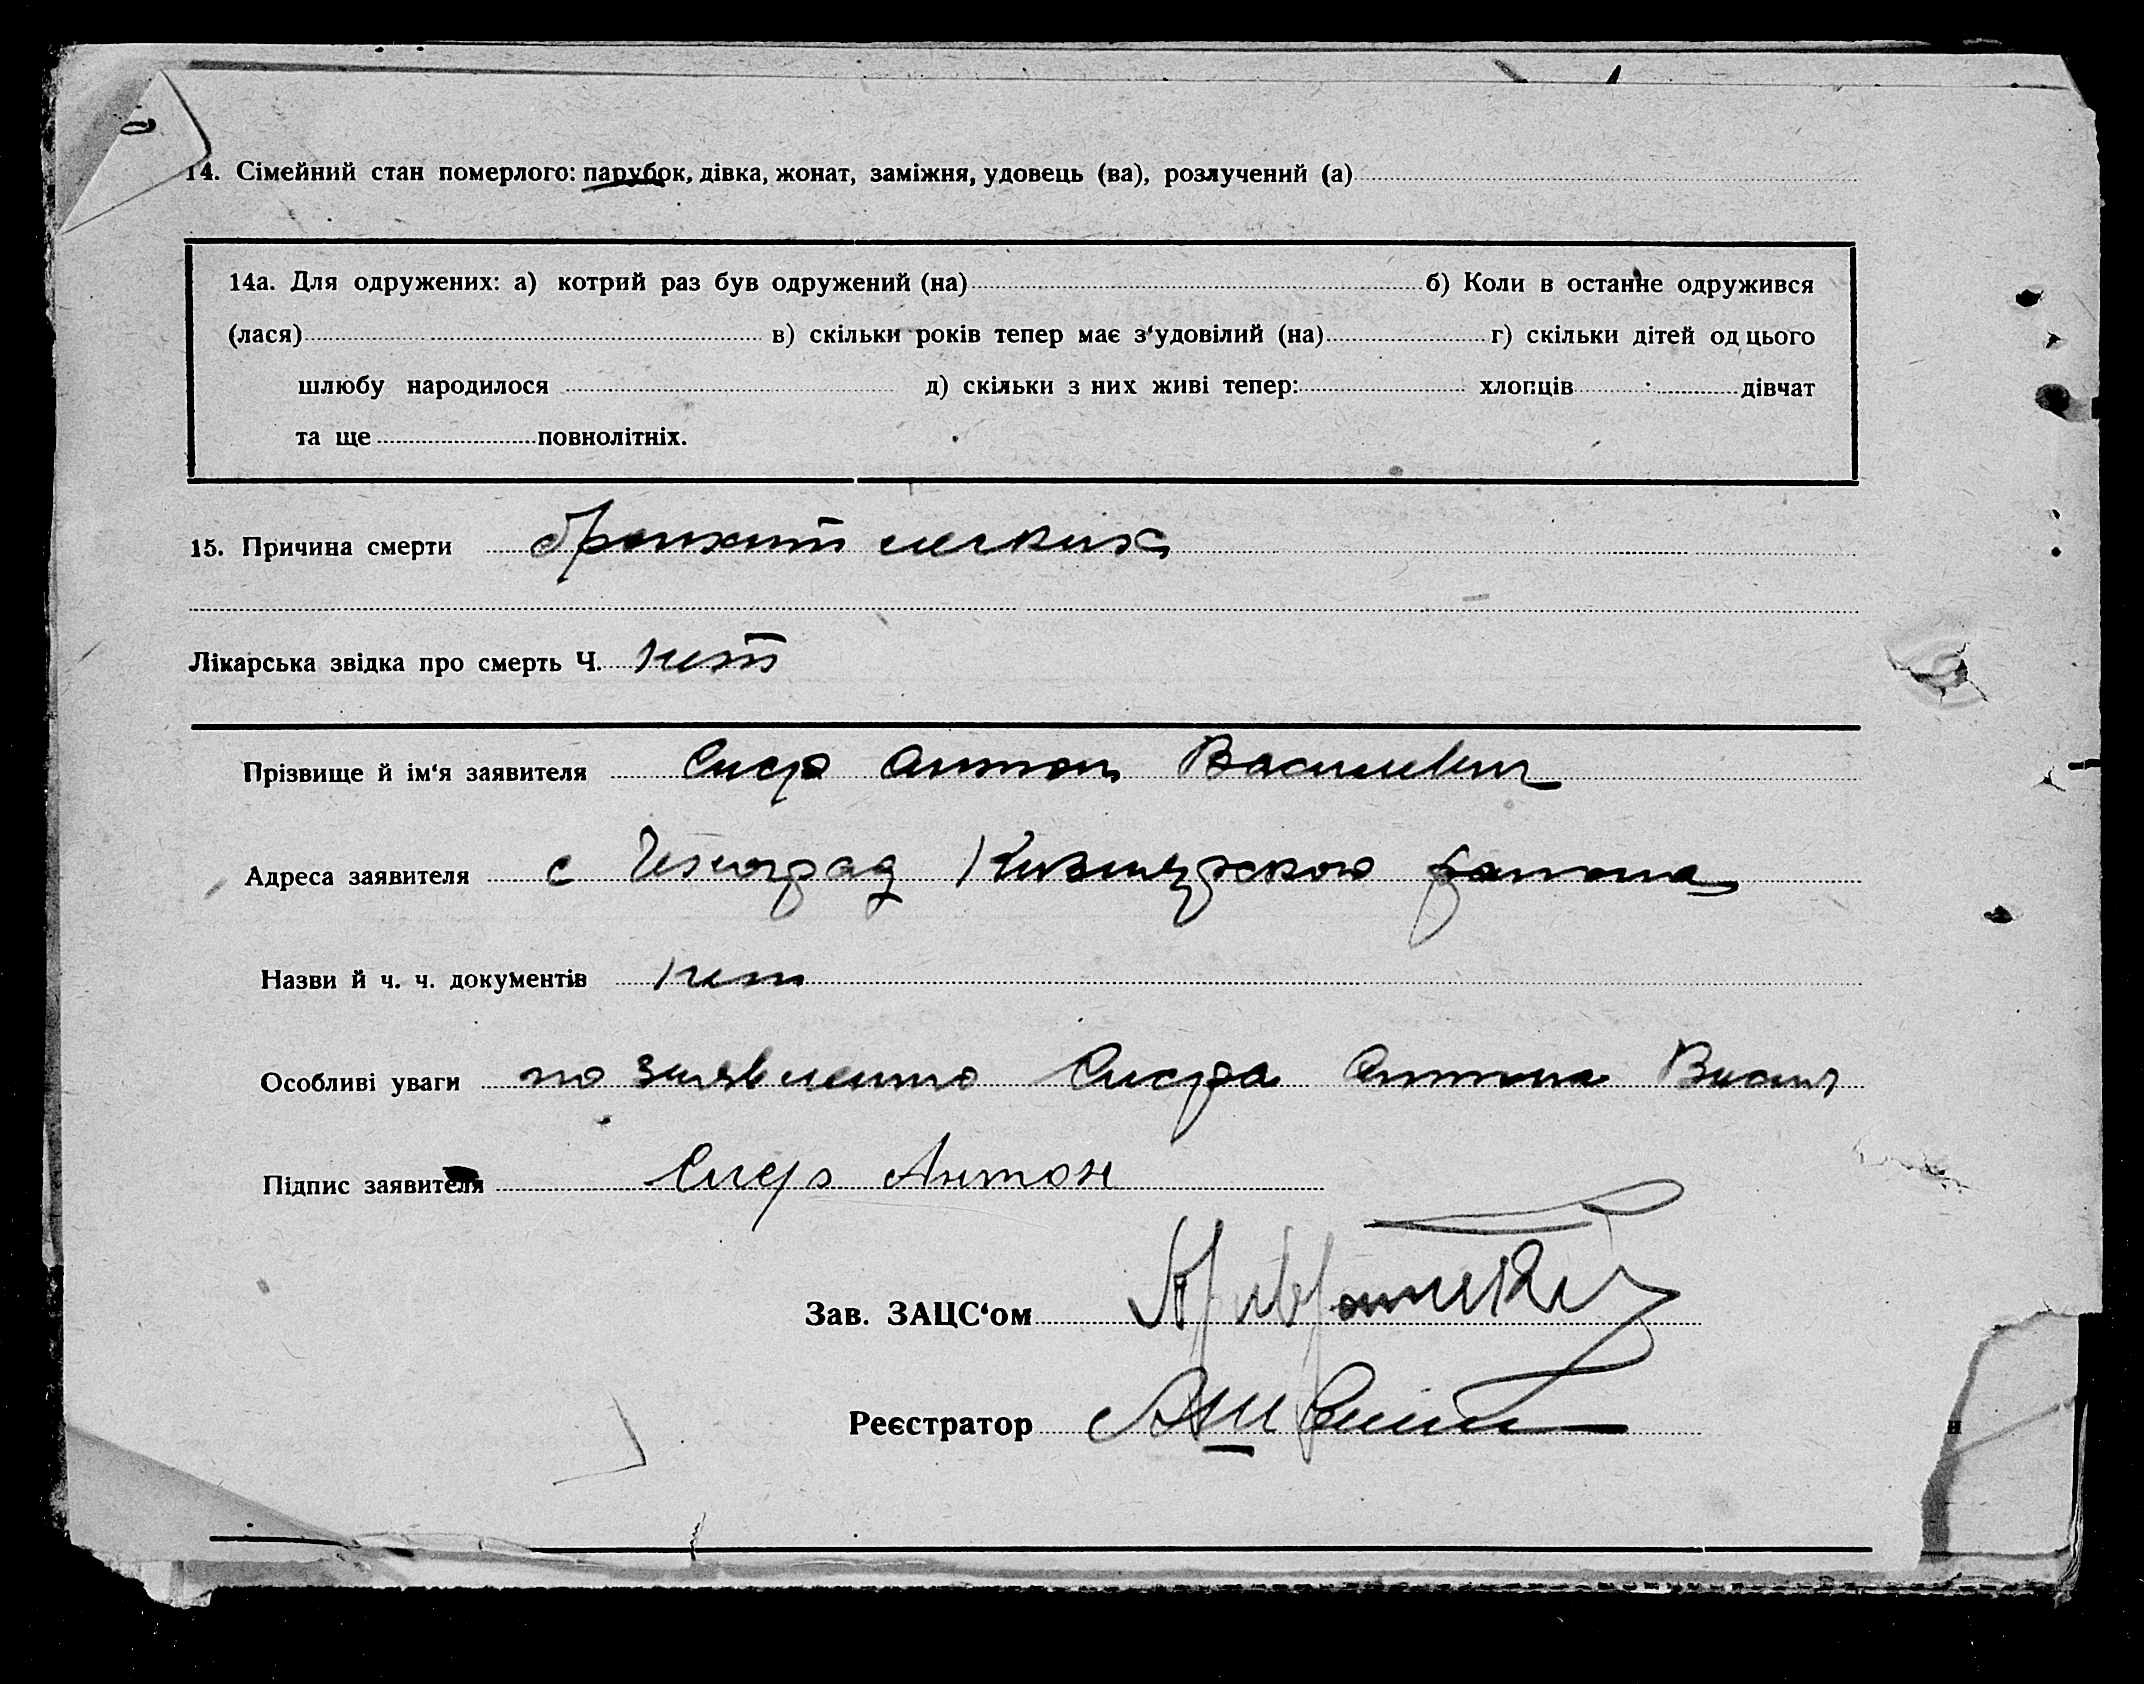 14. Сімейний стан померлого: парубок, дівка, жонат, заміжня, удовець (ва), розлучений (а)
14а. Для одружених: а) котрий раз був одружений (на) б) Коли в останнє одружився
(лася) в) скільки років тепер має з'удовілий (на) г) скільки дітей од цього
шлюбу народилося д) скільки з них живі тепер: хлопців дівчат
та ще повнолітніх.
15. Причина смерти бронхит легких
Лікарська звідка про смерть Ч. нет
Прізвище й ім'я заявителя Антон Василевич
Адреса заявителя с района
Назви й ч. ч. документів нет
Особливі уваги по заявлению Антона Васил
Підпис заявителя Антон
Зав. ЗАЦС'ом
Реєстратор
н